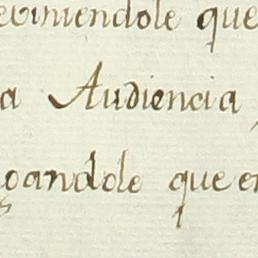 eviniendole que
a Audiencia
gandole que en